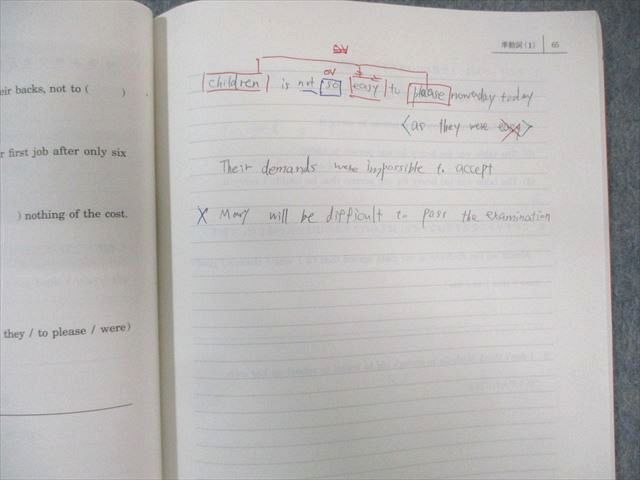 eir backs, not to (　　)
r first job after only six
) nothing of the cost.
they / to please / were)
準動詞(1) 65
SV
OV
children is not so easy to please nowaday today
<as they were easy>
Their demands were impossible to accept
X Mary will be difficult to pass the examination